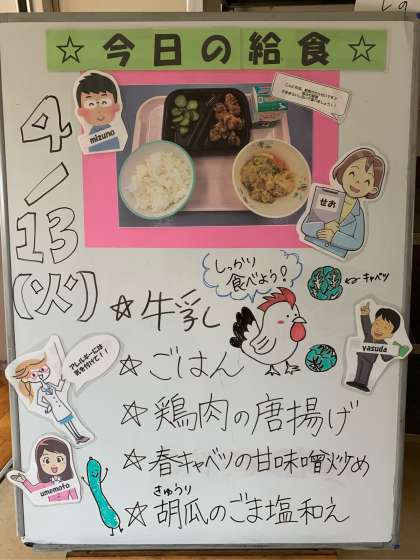 ☆今日の給食☆
mizuno
せお
4/13(火)
しっかり
食べよう!
キャベツ
☆牛乳
yasuda
☆ごはん
アレルギーには
気を付けて!!
☆鶏肉の唐揚げ
☆春キャベツの甘味噌炒め
umemoto
きゅうり
☆胡瓜のごま塩和え